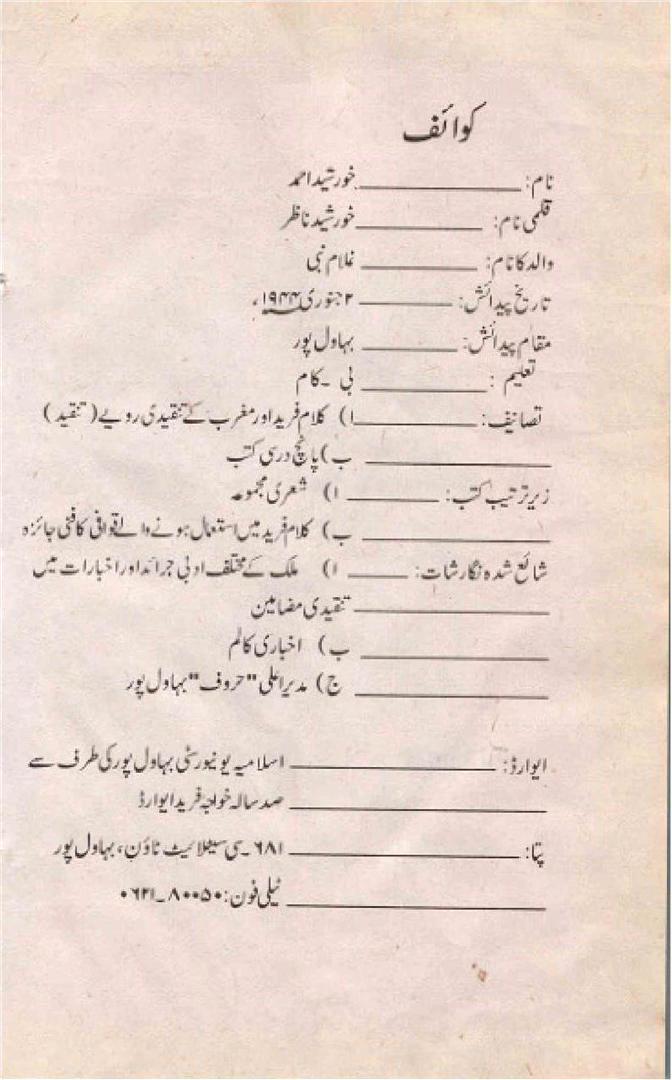 کوائف
نام: ____________ خورشید احمد
قلمی نام: ____________ خورشید ناظر
والد کا نام: ____________ غلام نبی
تاریخ پیدائش: ____________ ۲ جنوری ۱۹۴۴ء
مقام پیدائش: ____________ بہاول پور
تعلیم : ____________ بی ۔ کام
تصانیف: ____________ ا) کلام فرید اور مغرب کے تنقیدی رویے (تنقید)
____________ ب) پانچ درسی کتب
زیر ترتیب کتب: ____________ ا) شعری مجموعہ
____________ ب) کلام فرید میں استعمال ہونے والے قوافی کا فنی جائزہ
شائع شدہ نگارشات: ____________ ا) ملک کے مختلف ادبی جرائد اور اخبارات میں
____________ تنقیدی مضامین
____________ ب) اخباری کالم
____________ ج) مدیر اعلی "حروف" بہاول پور
ایوارڈ: ____________ اسلامیہ یونیورسٹی بہاول پور کی طرف سے
____________ صد سالہ خواجہ فرید ایوارڈ
پتا: ____________ ۶۸۱۔سی سیٹلائیٹ ٹاؤن، بہاول پور
____________ ٹیلی فون: ۸۰۰۵۰۔۰۶۲۱